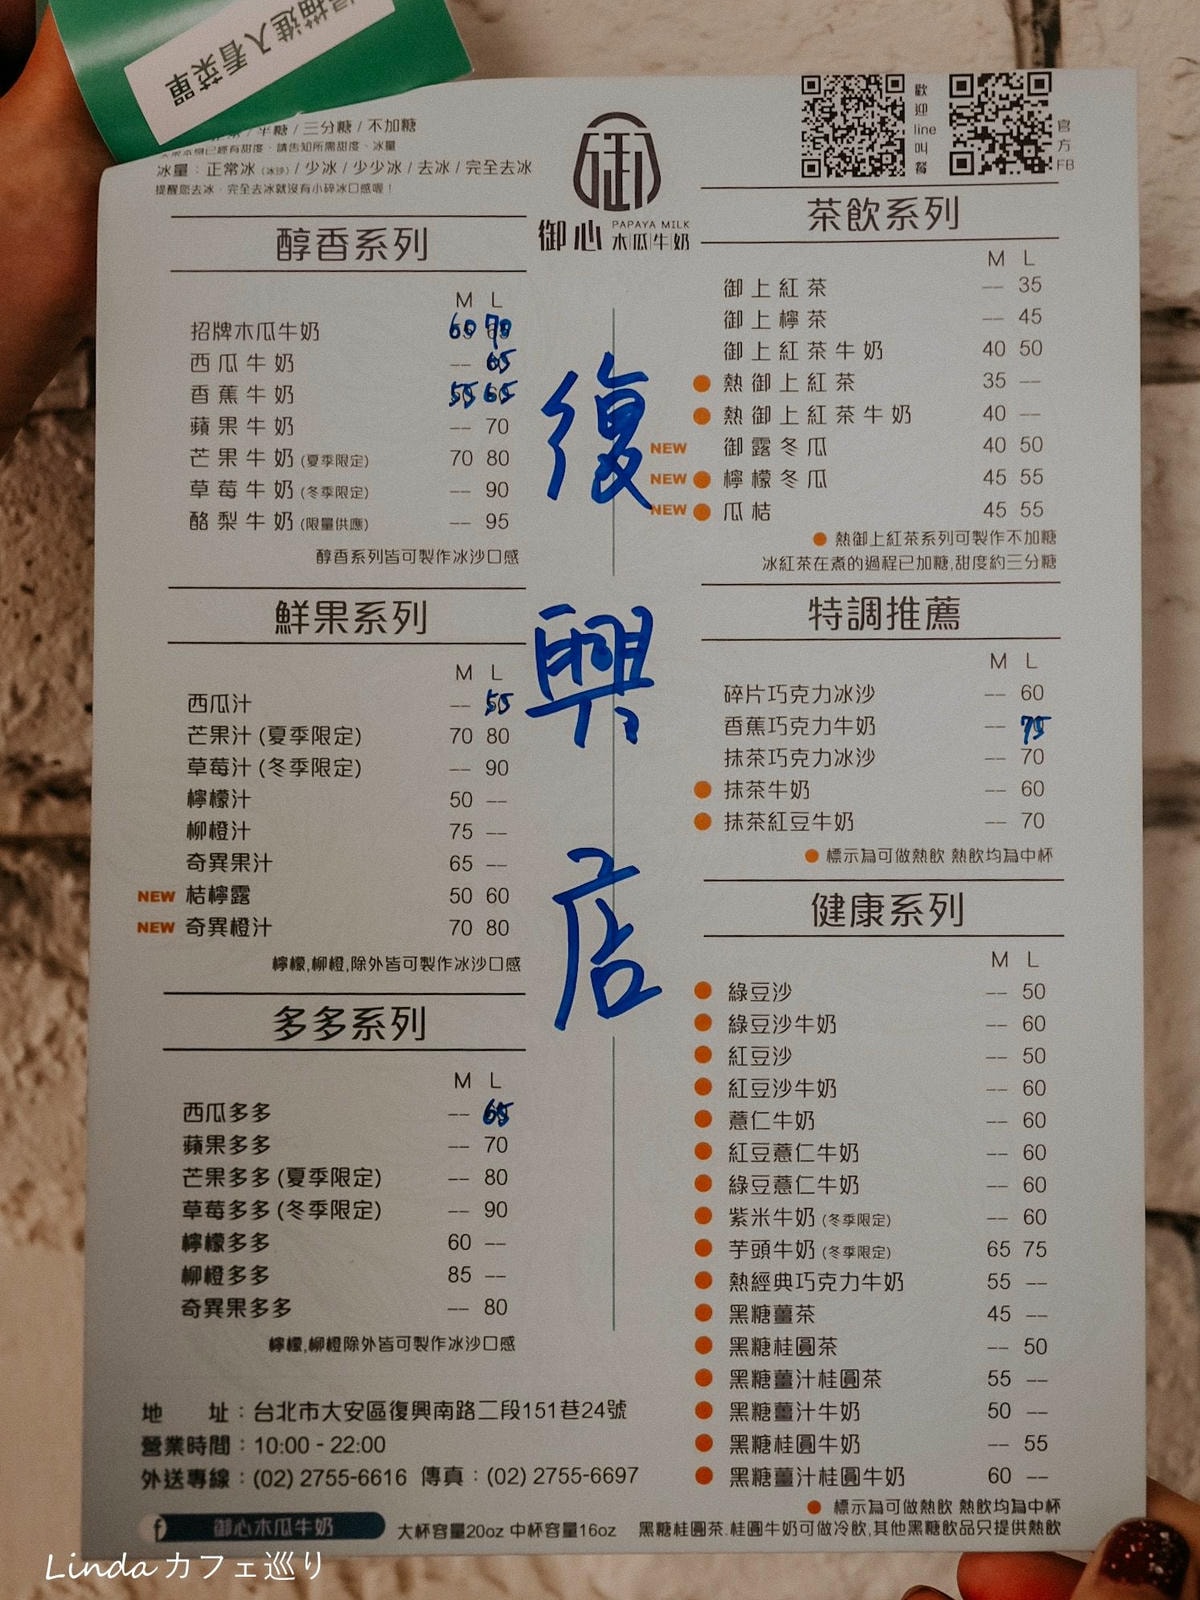 掃描進入看菜單
半糖 / 三分糖 / 不加糖
已經有甜度、請告知所需甜度、冰量
冰量：正常冰 (冰沙) / 少冰 / 少少冰 / 去冰 / 完全去冰
提醒您去冰、完全去冰就沒有小碎冰口感喔！
御心 PAPAYA MILK 木瓜牛奶
歡迎line叫餐
官方FB
復興店
醇香系列
M L
招牌木瓜牛奶 60 70
西瓜牛奶 -- 65
香蕉牛奶 55 65
蘋果牛奶 -- 70
芒果牛奶 (夏季限定) 70 80
草莓牛奶 (冬季限定) -- 90
酪梨牛奶 (限量供應) -- 95
醇香系列皆可製作冰沙口感
鮮果系列
M L
西瓜汁 -- 55
芒果汁 (夏季限定) 70 80
草莓汁 (冬季限定) -- 90
檸檬汁 50 --
柳橙汁 75 --
奇異果汁 65 --
NEW 桔檸露 50 60
NEW 奇異橙汁 70 80
檸檬,柳橙,除外皆可製作冰沙口感
多多系列
M L
西瓜多多 -- 65
蘋果多多 -- 70
芒果多多 (夏季限定) -- 80
草莓多多 (冬季限定) -- 90
檸檬多多 60 --
柳橙多多 85 --
奇異果多多 -- 80
檸檬,柳橙除外皆可製作冰沙口感
茶飲系列
M L
御上紅茶 -- 35
御上檸茶 -- 45
御上紅茶牛奶 40 50
熱御上紅茶 35 --
熱御上紅茶牛奶 40 --
NEW 御露冬瓜 40 50
NEW 檸檬冬瓜 45 55
NEW 瓜桔 45 55
熱御上紅茶系列可製作不加糖
冰紅茶在煮的過程已加糖,甜度約三分糖
特調推薦
M L
碎片巧克力冰沙 -- 60
香蕉巧克力牛奶 -- 75
抹茶巧克力冰沙 -- 70
抹茶牛奶 -- 60
抹茶紅豆牛奶 -- 70
標示為可做熱飲 熱飲均為中杯
健康系列
M L
綠豆沙 -- 50
綠豆沙牛奶 -- 60
紅豆沙 -- 50
紅豆沙牛奶 -- 60
薏仁牛奶 -- 60
紅豆薏仁牛奶 -- 60
綠豆薏仁牛奶 -- 60
紫米牛奶 (冬季限定) -- 60
芋頭牛奶 (冬季限定) 65 75
熱經典巧克力牛奶 55 --
黑糖薑茶 45 --
黑糖桂圓茶 -- 50
黑糖薑汁桂圓茶 55 --
黑糖薑汁牛奶 50 --
黑糖桂圓牛奶 -- 55
黑糖薑汁桂圓牛奶 60 --
標示為可做熱飲 熱飲均為中杯
黑糖桂圓茶.桂圓牛奶可做冷飲,其他黑糖飲品只提供熱飲
地　址：台北市大安區復興南路二段151巷24號
營業時間：10:00 - 22:00
外送專線：(02) 2755-6616 傳真：(02) 2755-6697
f 御心木瓜牛奶 大杯容量20oz 中杯容量16oz
Linda カフェ巡り